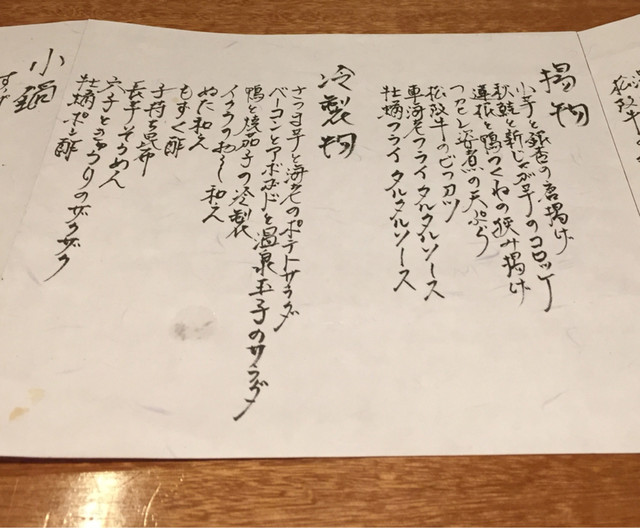 松阪牛の
揚物
小芋と銀杏の唐揚げ
秋鮭と新じゃが芋のコロッケ
蓮根と鴨つくねの挟み揚げ
フカヒレ姿煮の天ぷら
松阪牛の一口カツ
車海老フライタルタルソース
牡蠣フライタルタルソース
冷製物
さつま芋と海老のポテトサラダ
ベーコンとアボカドと温泉玉子のサラダ
鴨と焼茄子の冷製
イクラのおろし和え
ぬた和え
もずく酢
子持昆布
長芋そうめん
穴子ときゅうりのザクザク
牡蠣ポン酢
小鍋